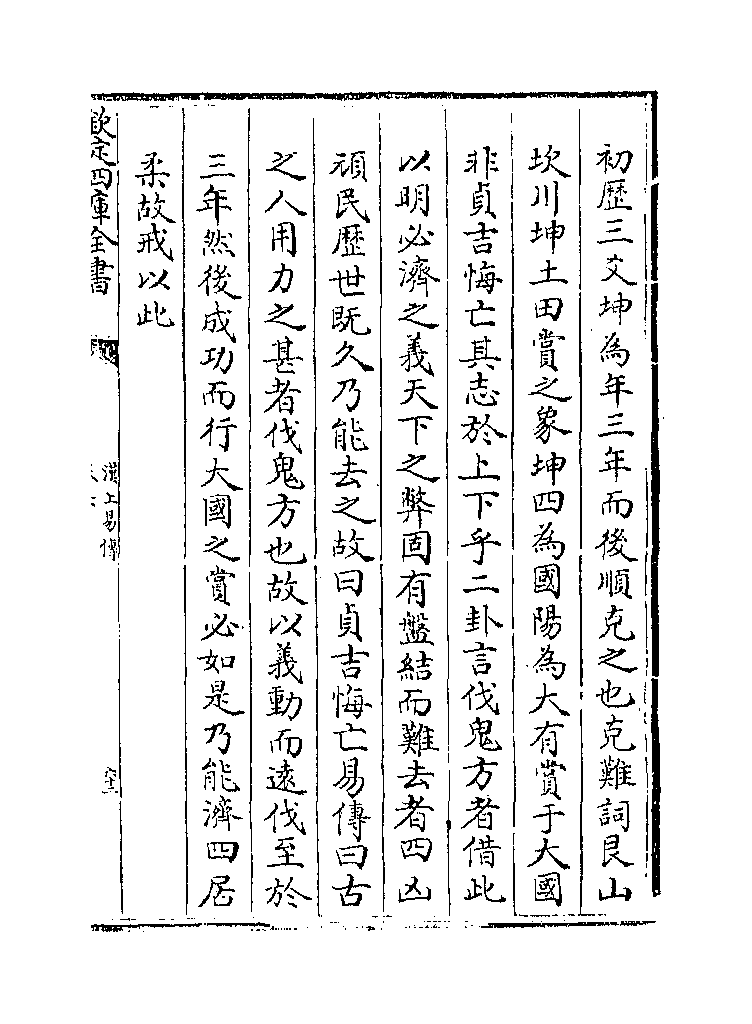 初歷三爻坤為年三年而後順克之也克難詞艮山
坎川坤土田賞之象坤四為國陽為大有賞于大國
非貞吉悔亡其志於上下乎二卦言伐鬼方者借此
以明必濟之義天下之弊固有盤結而難去者四凶
頑民歷世既久乃能去之故曰貞吉悔亡易傳曰古
之人用力之甚者伐鬼方也故以義動而遠伐至於
三年然後成功而行大國之賞必如是乃能濟四居
柔故戒以此
欽定四庫全書
漢上易傳